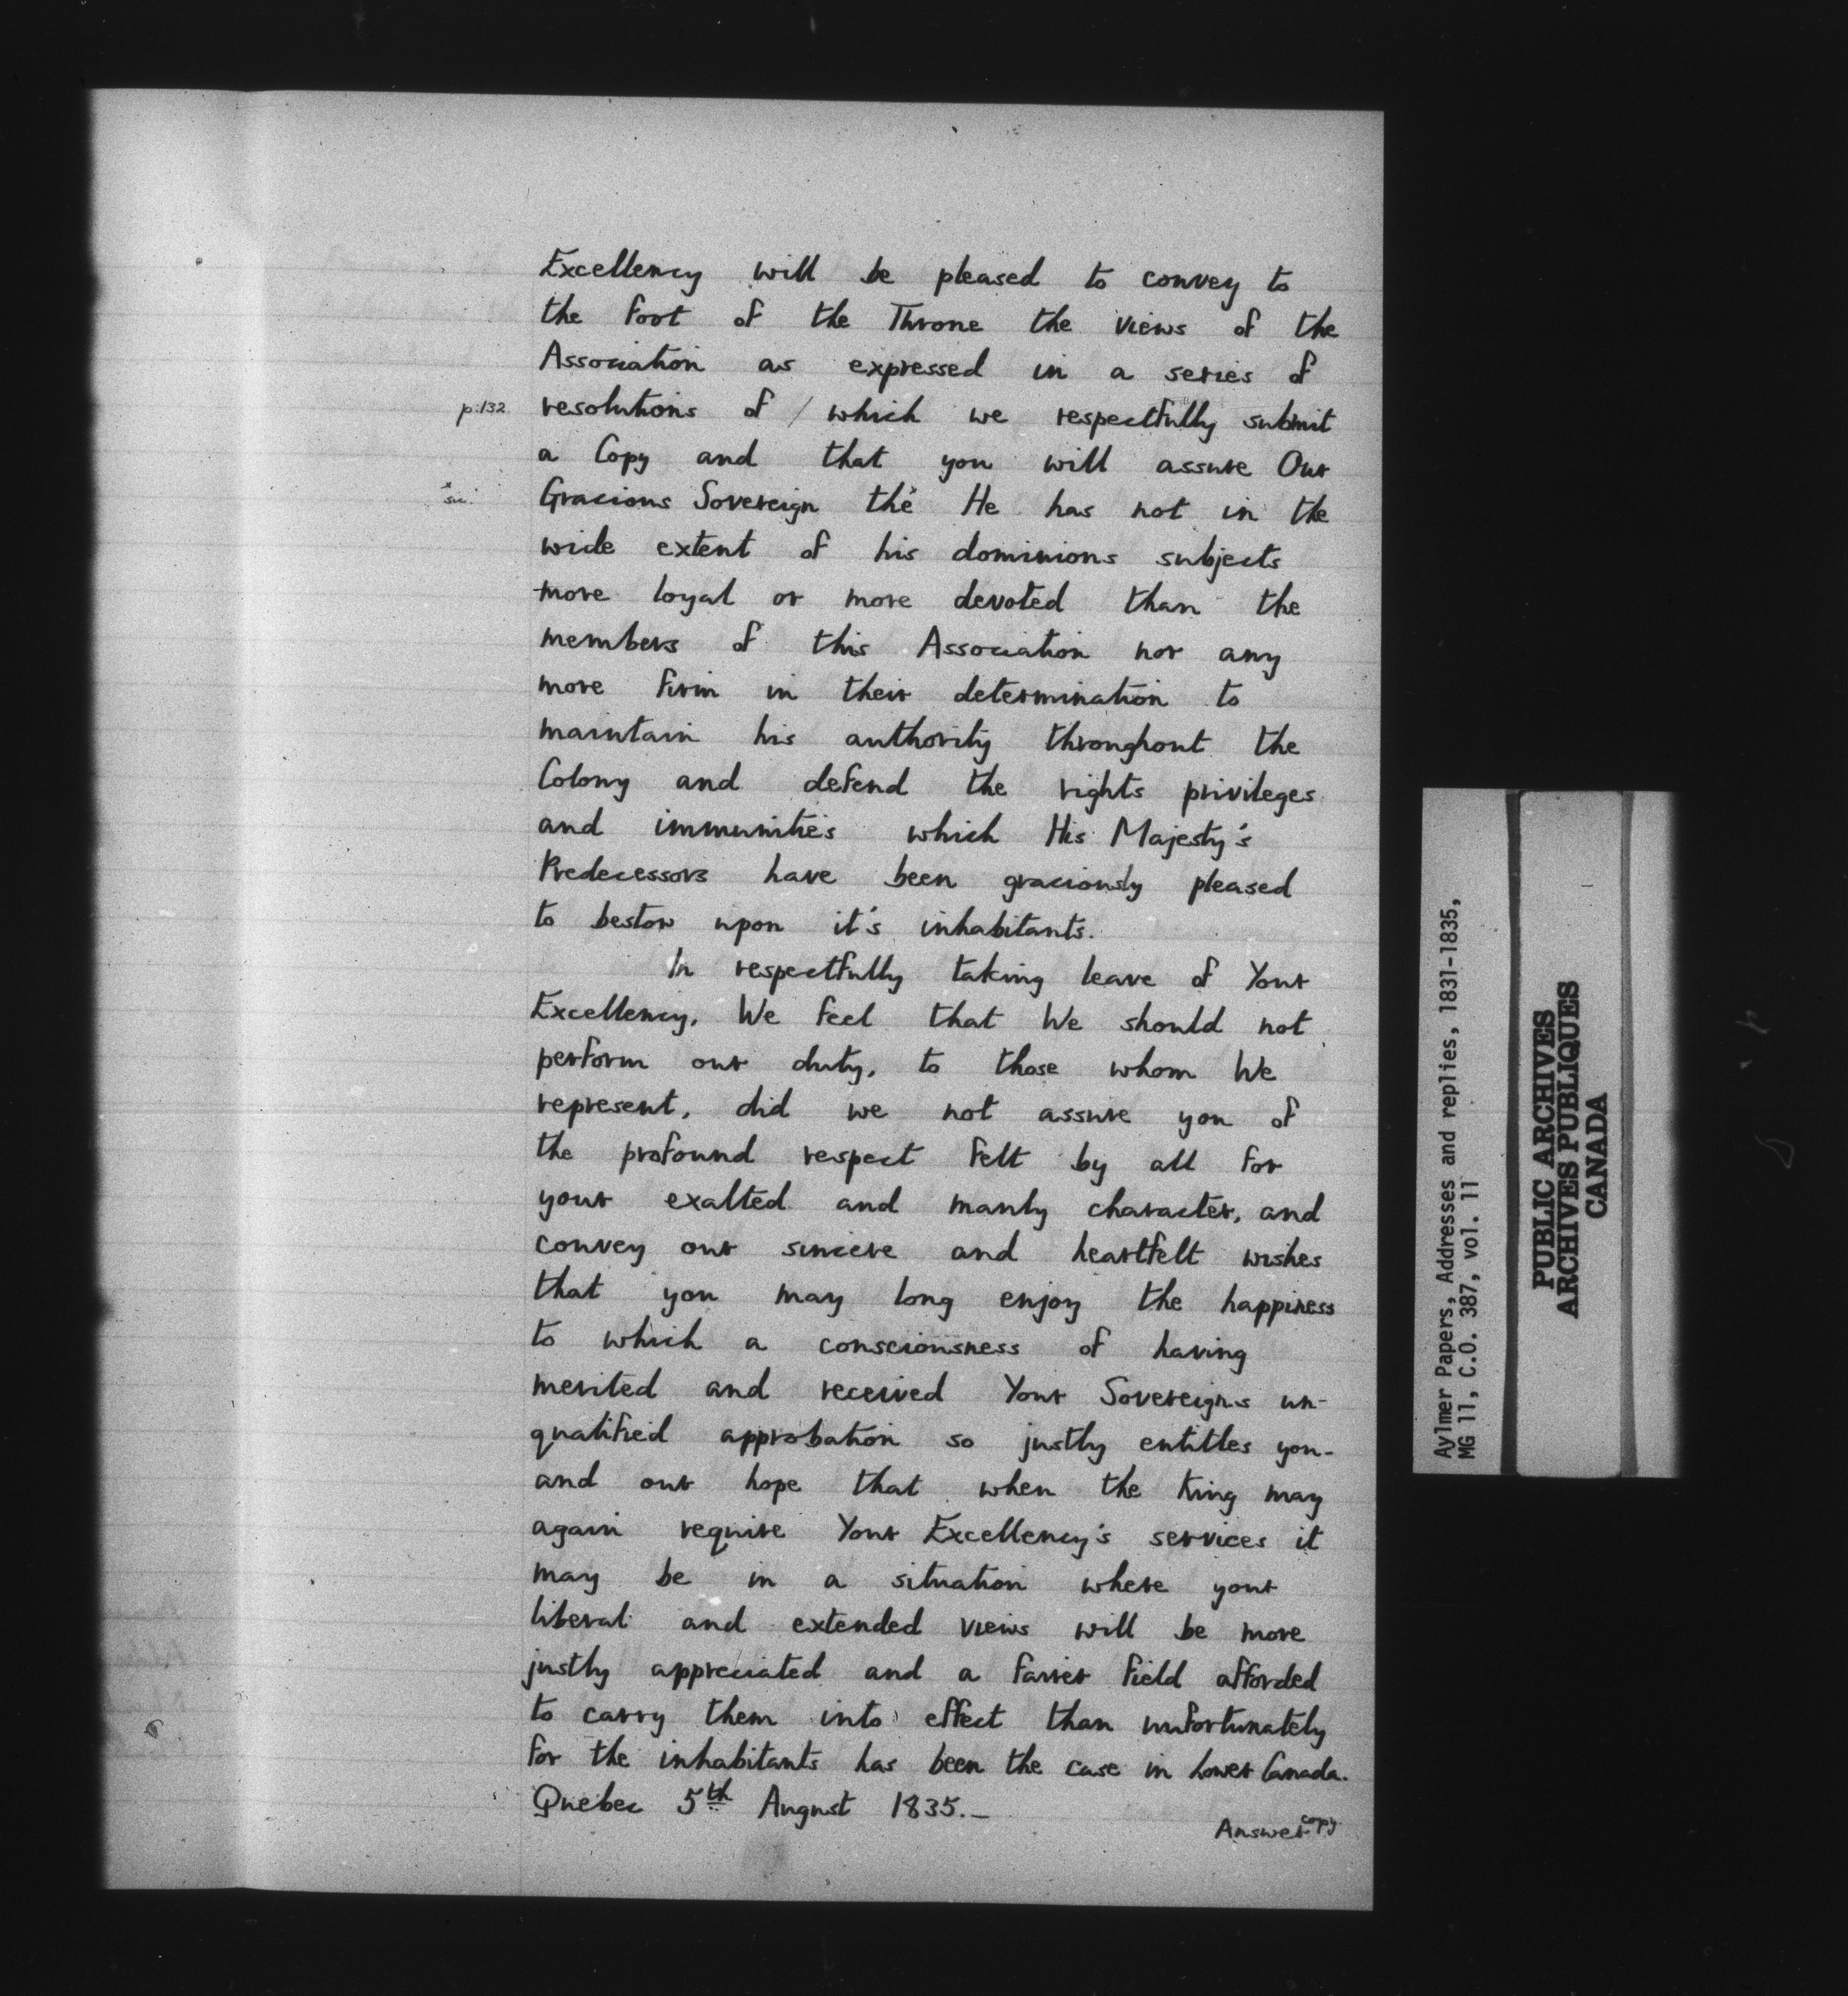 Excellency will be pleased to convey to
the foot of the Throne the views of the
Association as expressed in a series of
p.132 resolutions of / which we respectfully submit
a Copy and that you will assure Our
Gracious Sovereign the He has not in the
wide extent of his dominions subjects
more loyal or more devoted than the
members of this Association nor any
more firm in their determination to
maintain his authority throughout the
Colony and defend the rights privileges
and immunities which His Majesty's
Predecessors have been graciously pleased
to bestow upon it's inhabitants.
In respectfully taking leave of Your
Excellency, We feel that We should not
perform our duty, to those whom We
represent, did we not assure you of
the profound respect felt by all for
your exalted and manly character, and
convey our sincere and heartfelt wishes
that you may long enjoy the happiness
to which a consciousness of having
merited and received Your Sovereigns un-
qualified approbation so justly entitles you-
and our hope that when the King may
again require Your Excellency's services it
may be in a situation where your
liberal and extended views will be more
justly appreciated and a fairer field afforded
to carry them into effect than unfortunately
for the inhabitants has been the case in Lower Canada.
Quebec 5th August 1835.-
Answer copy
Aylmer Papers, Addresses and replies, 1831-1835,
MG 11, C.O. 387, vol. 11
PUBLIC ARCHIVES
ARCHIVES PUBLIQUES
CANADA